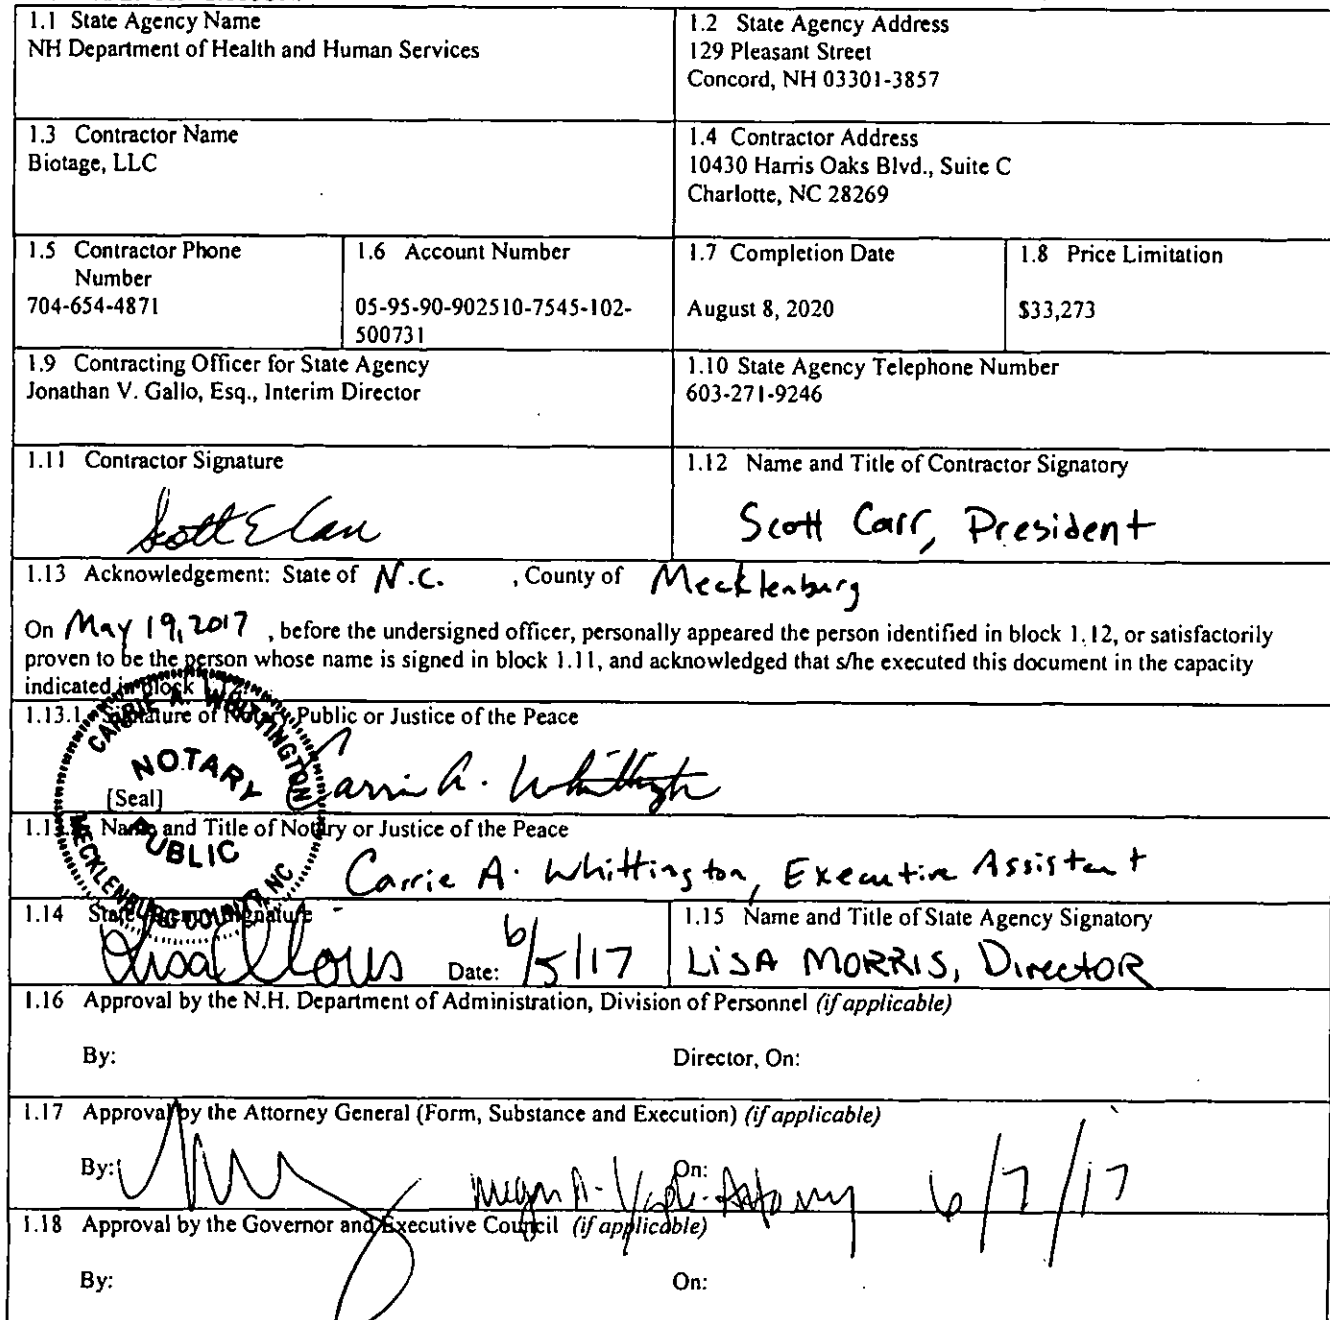 1.1 State Agency Name
NH Department of Health and Human Services
1.2 State Agency Address
129 Pleasant Street
Concord, NH 03301-3857
1.3 Contractor Name
Biotage, LLC
1.4 Contractor Address
10430 Harris Oaks Blvd., Suite C
Charlotte, NC 28269
1.5 Contractor Phone
Number
704-654-4871
1.6 Account Number
05-95-90-902510-7545-102-
500731
1.7 Completion Date
August 8, 2020
1.8 Price Limitation
$33,273
1.9 Contracting Officer for State Agency
Jonathan V. Gallo, Esq., Interim Director
1.10 State Agency Telephone Number
603-271-9246
1.11 Contractor Signature
Scott E Carr
1.12 Name and Title of Contractor Signatory
Scott Carr, President
1.13 Acknowledgement: State of N.C. , County of Mecklenburg
On May 19, 2017 , before the undersigned officer, personally appeared the person identified in block 1.12, or satisfactorily
proven to be the person whose name is signed in block 1.11, and acknowledged that s/he executed this document in the capacity
indicated in block 1.12.
1.13.1 Signature of Notary Public or Justice of the Peace
CARRIE A. WHITTINGTON
NOTARY
PUBLIC
MECKLENBURG COUNTY, NC
[Seal]
Carrie A. Whittington
1.13.2 Name and Title of Notary or Justice of the Peace
Carrie A. Whittington, Executive Assistant
1.14 State Agency Signature
Lisa Morris Date: 6/5/17
1.15 Name and Title of State Agency Signatory
LISA MORRIS, DIRECTOR
1.16 Approval by the N.H. Department of Administration, Division of Personnel (if applicable)
By: Director, On:
1.17 Approval by the Attorney General (Form, Substance and Execution) (if applicable)
By: On: 6/7/17
1.18 Approval by the Governor and Executive Council (if applicable)
By: On: